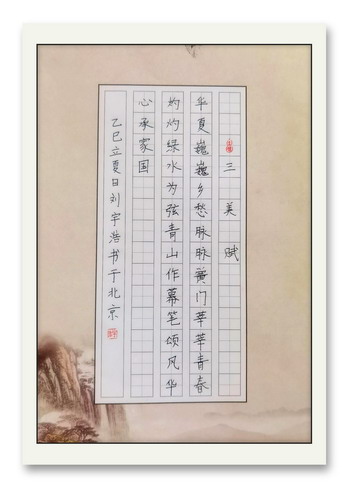 三美赋
华夏巍巍乡愁脉脉黉门莘莘青春
灼灼绿水为弦青山作幕笔颂风华
心承家国
乙巳立夏日刘宇浩书于北京